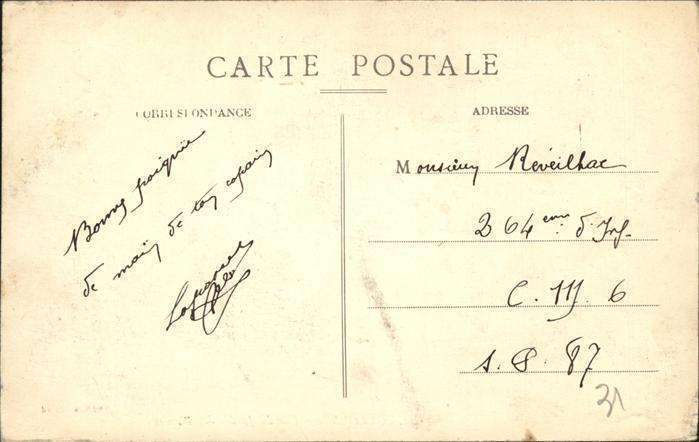 CARTE POSTALE
CORRESPONDANCE
ADRESSE
Bonne poignée
de main de ton copain
Monsieur Réveilhac
264eme d'Inf.
C. M. 6
S. P. 87
31